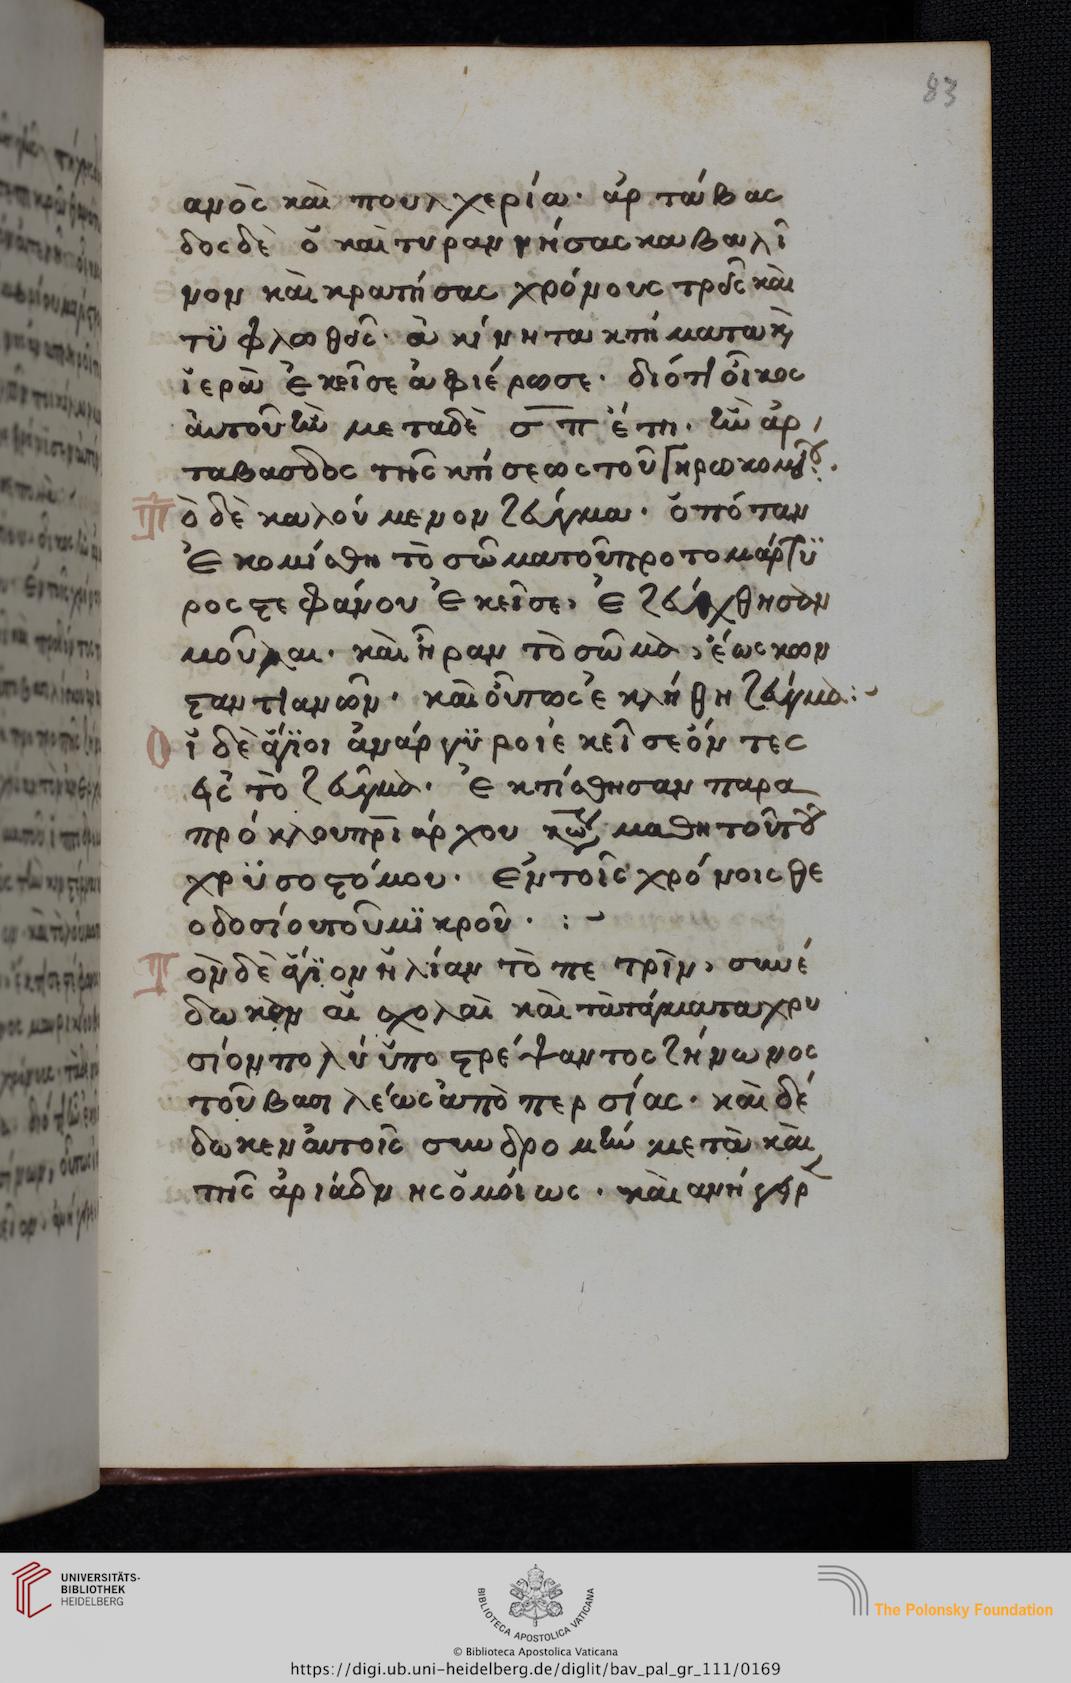 83
ανὸς καὶ πουλχερία· ἀρτάβας
δος δὲ ὁ καὶ τυραννήσας καβαλῖ
νον καὶ κρατήσας χρόνους τρεῖς καὶ
τϋφλωθεὶς· ἀκίνητα κτήματα κ(αὶ)
ἱερὰ ἐκεῖσε ἀφιέρωσε· διότι οἶκος
ἀυτοῦ ἦν μεταδὲ σ̅π̅ ἔτη· ἦν ἀρ
ταβασδος τῆς κτήσεως τοῦ γηρωκομείου·
ὸ δὲ καλούμενον ζεύγμα· ὁπόταν
ἐκομίσθη τὸ σῶμα τοῦ πρωτομάρτϋ
ρος στεφάνου ἐκεῖσε, ἐζεύχθησαν
μοῦλαι· καὶ ἦραν τὸ σῶμα, ἕως κων
σταντιανῶν· καὶ οὕτως ἐκλήθη ζεύγμα:
Οἱ δὲ ἅγϊοι ἀνάργϋροι ἐκεῖσε ὄντες
εἰς τὸ ζεύγμα· ἐκτίσθησαν παρα
πρόκλου πατριάρχου κων μαθητοῦ τοῦ
χρϋσοστόμου· ἐν τοῖς χρόνοις θε
οδοσίου τοῦ μϊκροῦ·:
Τὸν δὲ ἅγϊον ἠλίαν τὸ πετρὶν, συνέ
δωκεν αἱ σχολαὶ καὶ τὰ τάγματα χρυ
σίον πολύ ὑποστρέψαντος ζήνωνος
τοῦ βασιλέως ἀπὸ περσίας· καὶ δέ
δωκεν ἀυτοῖς συνδρομὴν μετὰ καὶ
τῆς ἀριάδνης ὁμοίως· καὶ ανήγειρ
UNIVERSITÄTS-
BIBLIOTHEK
HEIDELBERG
BIBLIOTECA APOSTOLICA VATICANA
The Polonsky Foundation
© Biblioteca Apostolica Vaticana
https://digi.ub.uni-heidelberg.de/diglit/bav_pal_gr_111/0169